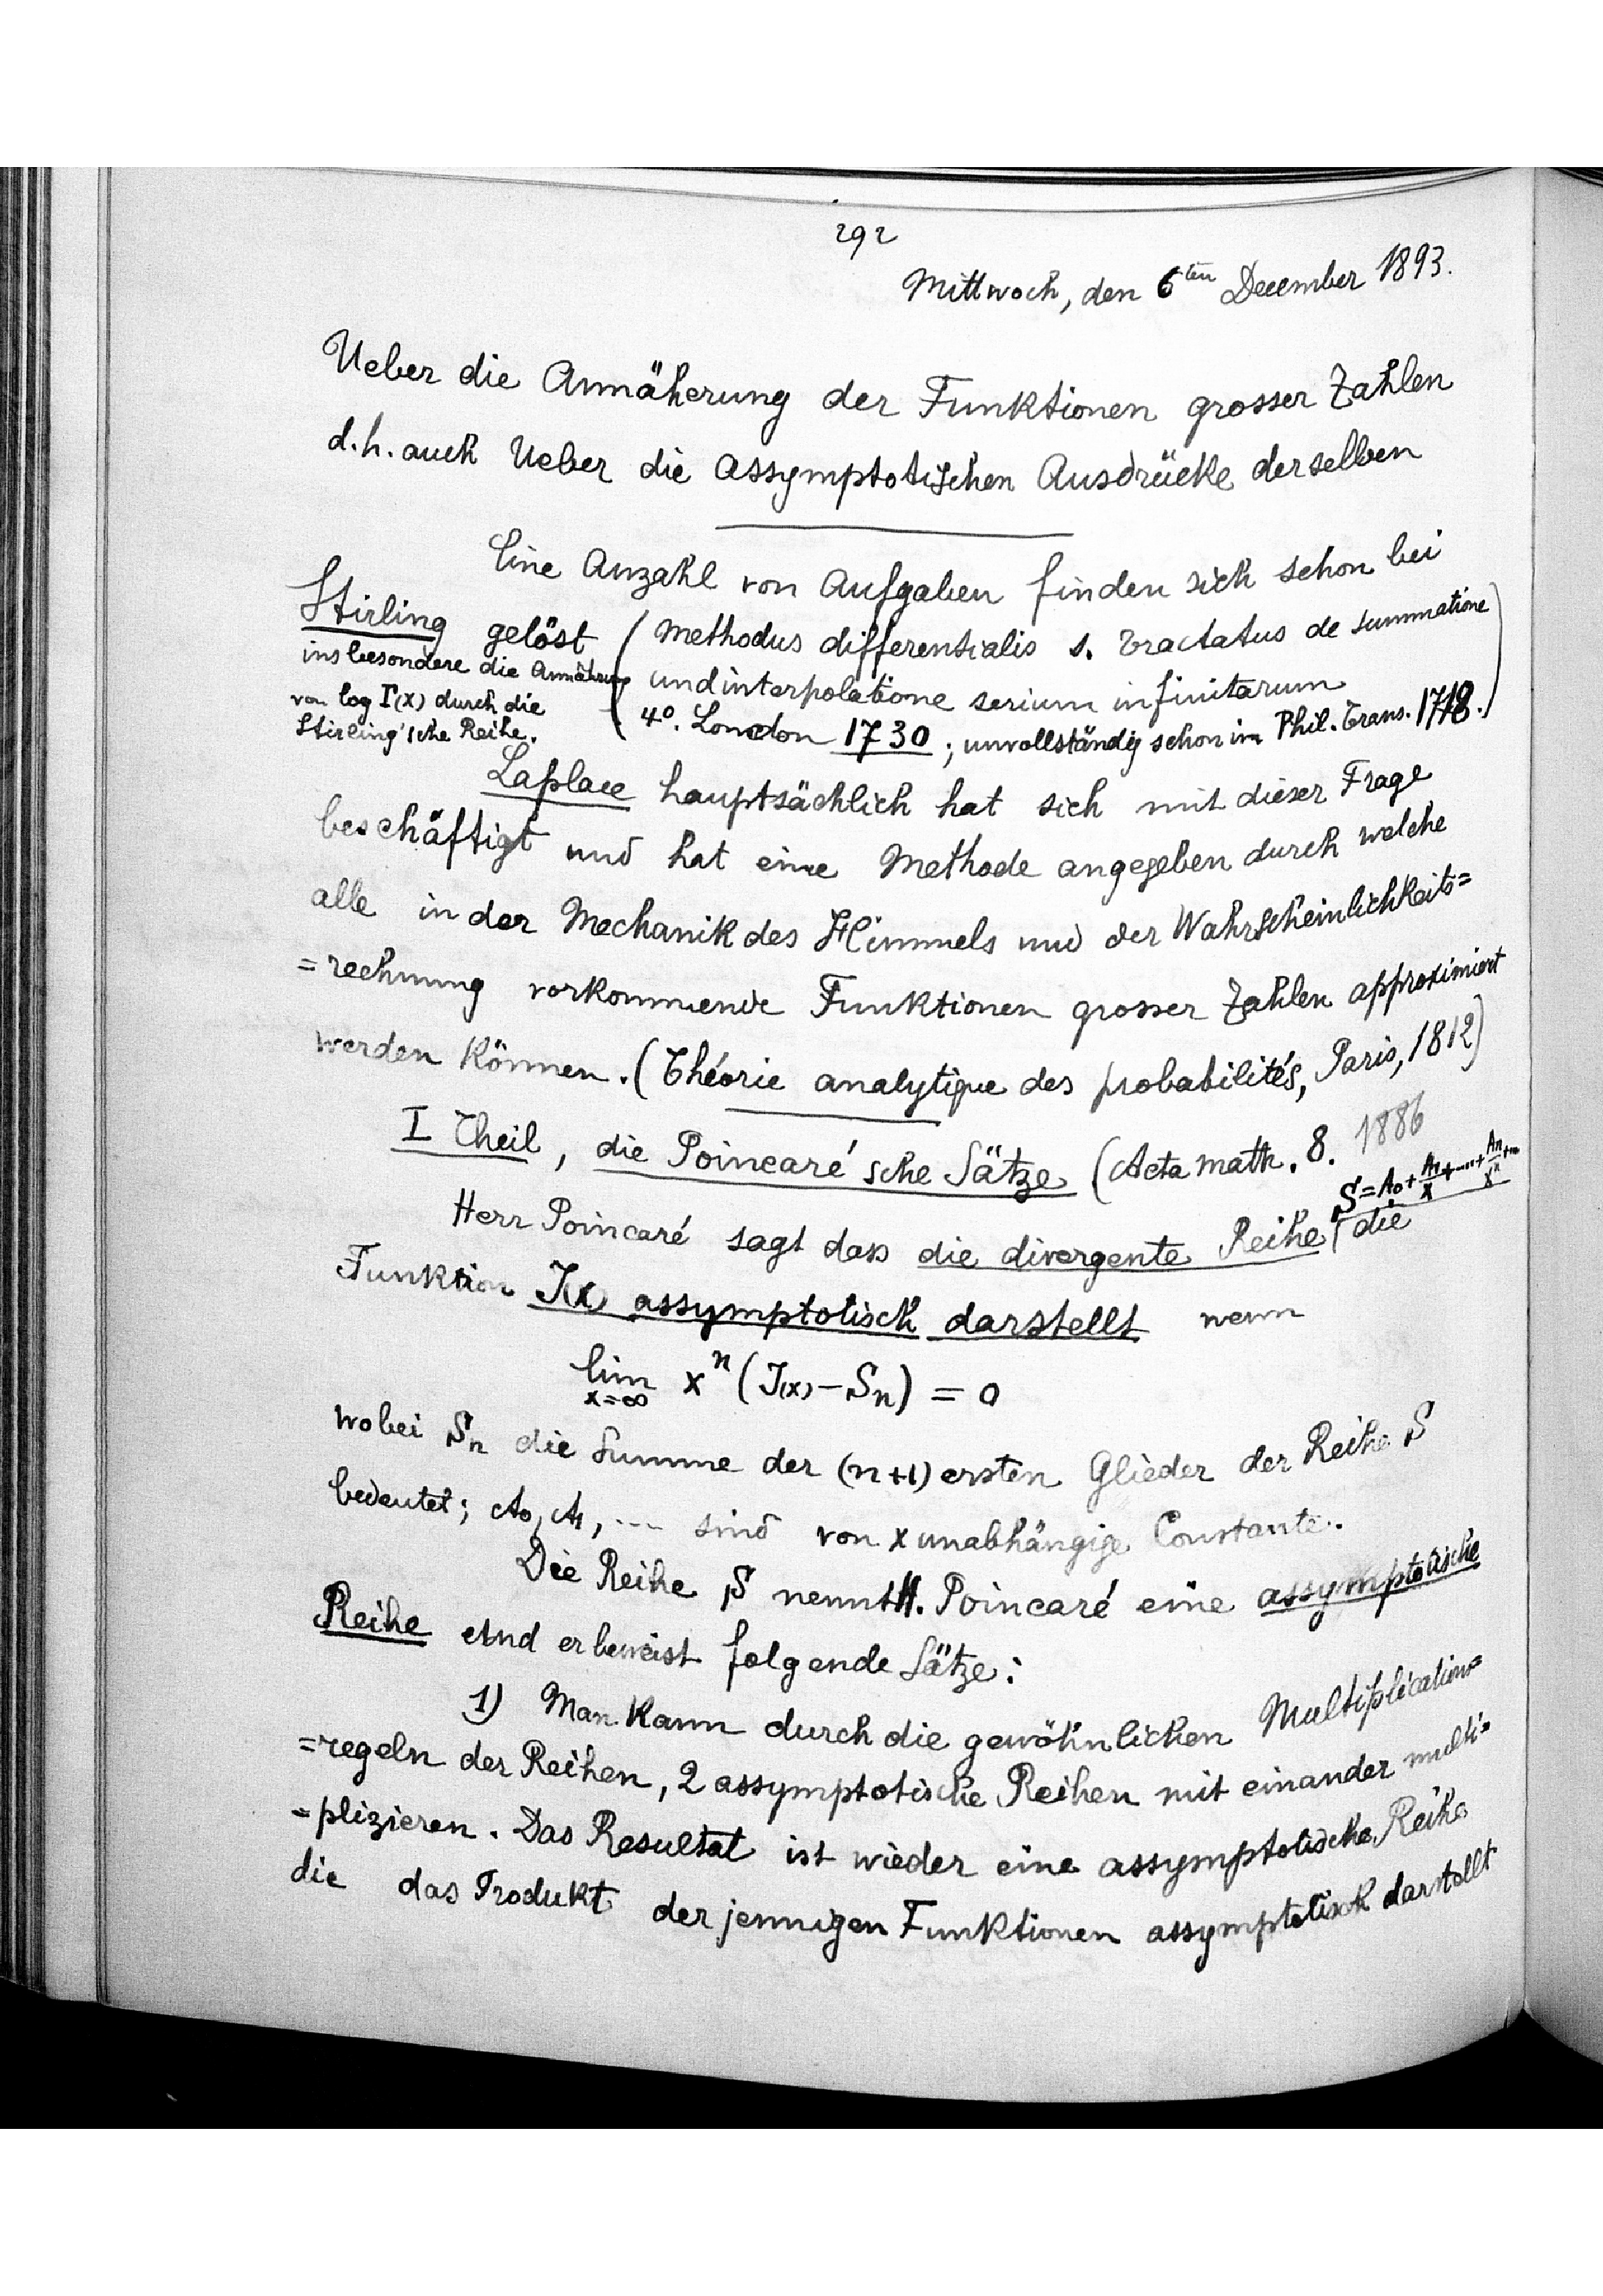 292
Mittwoch, den 6ten December 1893.
Ueber die Annäherung der Funktionen grosser Zahlen
d.h. auch Ueber die assymptotischen Ausdrücke derselben
Eine Anzahl von Aufgaben finden sich schon bei
Stirling gelöst (Methodus differentialis s. tractatus de summatione
und interpolatione serium infinitarum
4°. London 1730; unvollständig schon im Phil. Trans. 1718.)
insbesondere die Annährung
von log Γ(x) durch die
Stirling'sche Reihe.
Laplace hauptsächlich hat sich mit dieser Frage
beschäftigt und hat eine Methode angegeben durch welche
alle in der Mechanik des Himmels und der Wahrscheinlichkeits=
=rechnung vorkommende Funktionen grosser Zahlen approximiert
werden können. (Théorie analytique des probabilités, Paris, 1812)
I Theil, die Poincaré'sche Sätze (Acta math. 8. 1886
S = A0 + A1/x + ... + An/x^n + ...
Herr Poincaré sagt dass die divergente Reihe die
Funktion J(x) assymptotisch darstellt wenn
lim x=∞ x^n (J(x) − Sn) = 0
wobei Sn die Summe der (n+1) ersten Glieder der Reihe S
bedeutet; A0, A1, ... sind von x unabhängige Constante.
Die Reihe S nennt H. Poincaré eine assymptotische
Reihe und er beweist folgende Sätze:
1) Man kann durch die gewöhnlichen Multiplications=
=regeln der Reihen, 2 assymptotische Reihen mit einander multi=
=plizieren. Das Resultat ist wieder eine assymptotische Reihe
die das Produkt der jennigen Funktionen assymptotisch darstellt